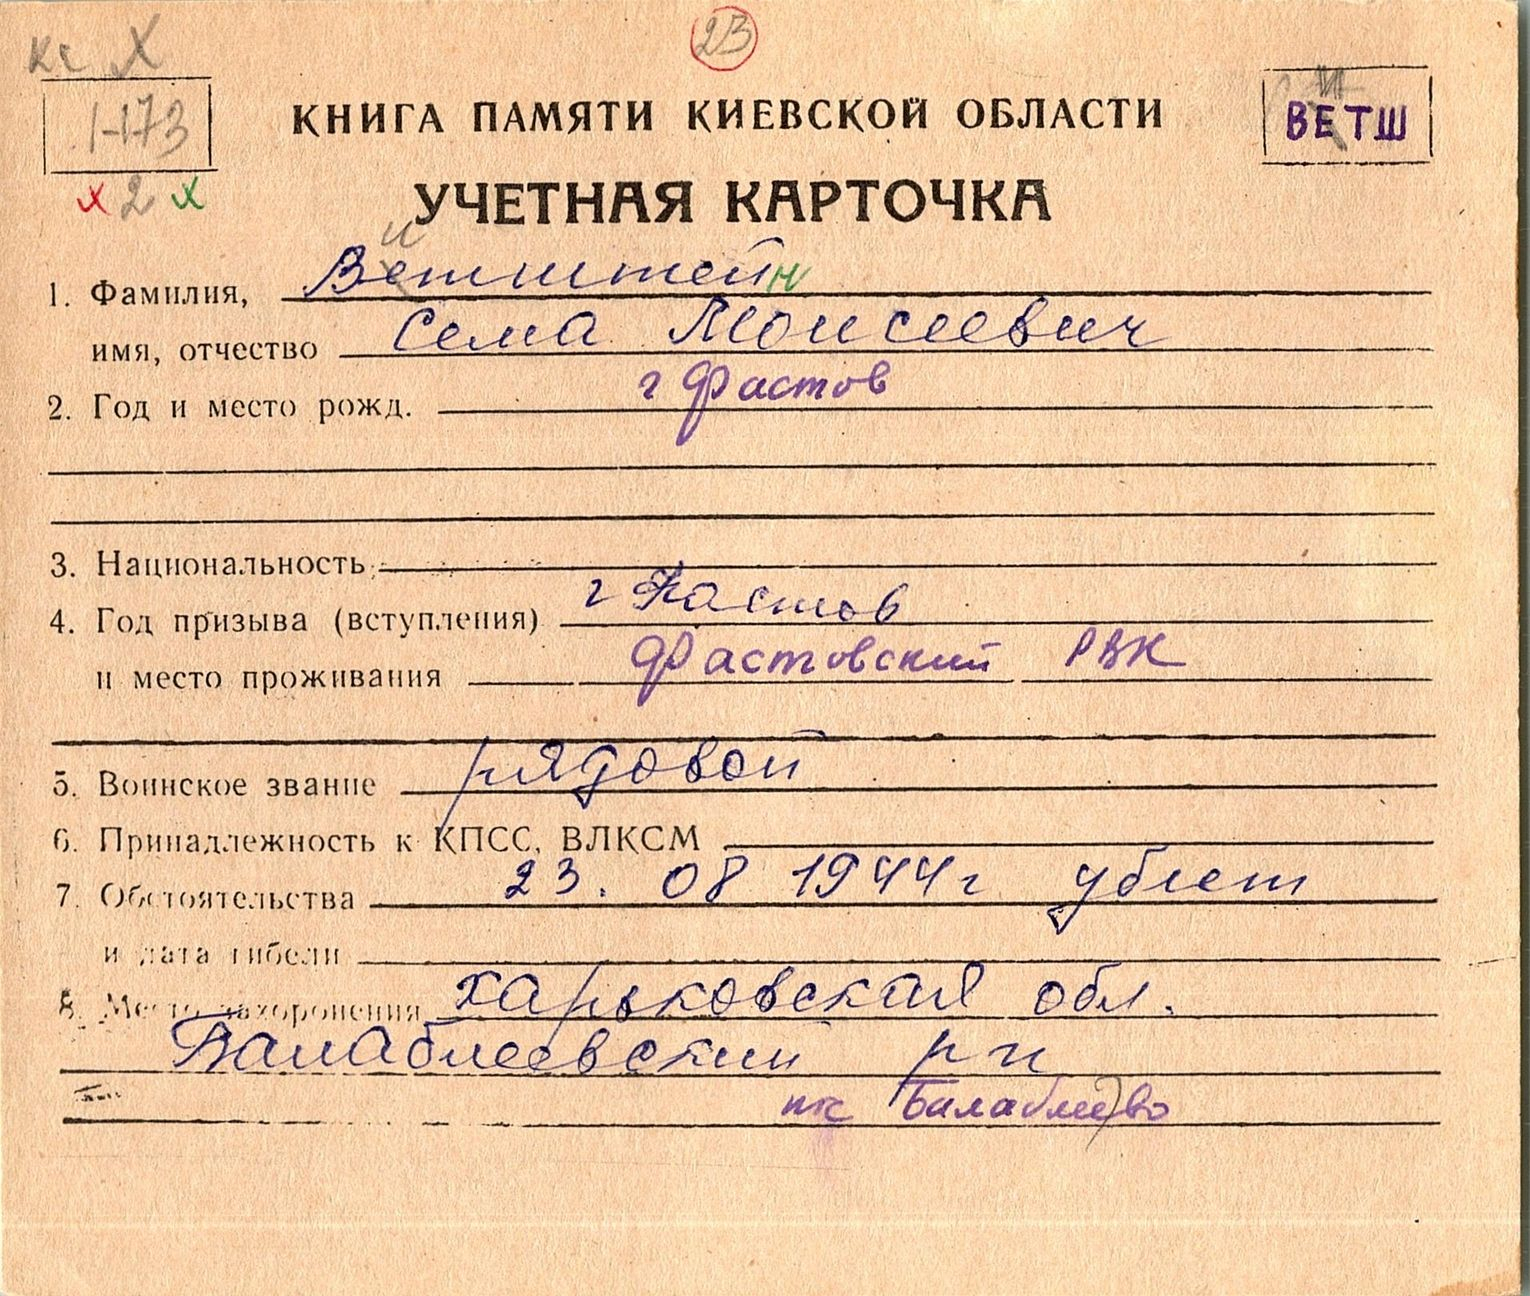 кс X
23
1-173
КНИГА ПАМЯТИ КИЕВСКОЙ ОБЛАСТИ
ВЕТШ
х 2 х
УЧЕТНАЯ КАРТОЧКА
и
1. Фамилия, Ветштейн
имя, отчество Сема Моисеевич
2. Год и место рожд. г Фастов
3. Национальность
4. Год призыва (вступления) г Фастов
и место проживания Фастовский РВК
5. Воинское звание рядовой
6. Принадлежность к КПСС, ВЛКСМ
7. Обстоятельства 23. 08 1944г убит
и дата гибели
8. Место захоронения Харьковская обл.
Балаблеевский р н
Балаблеево